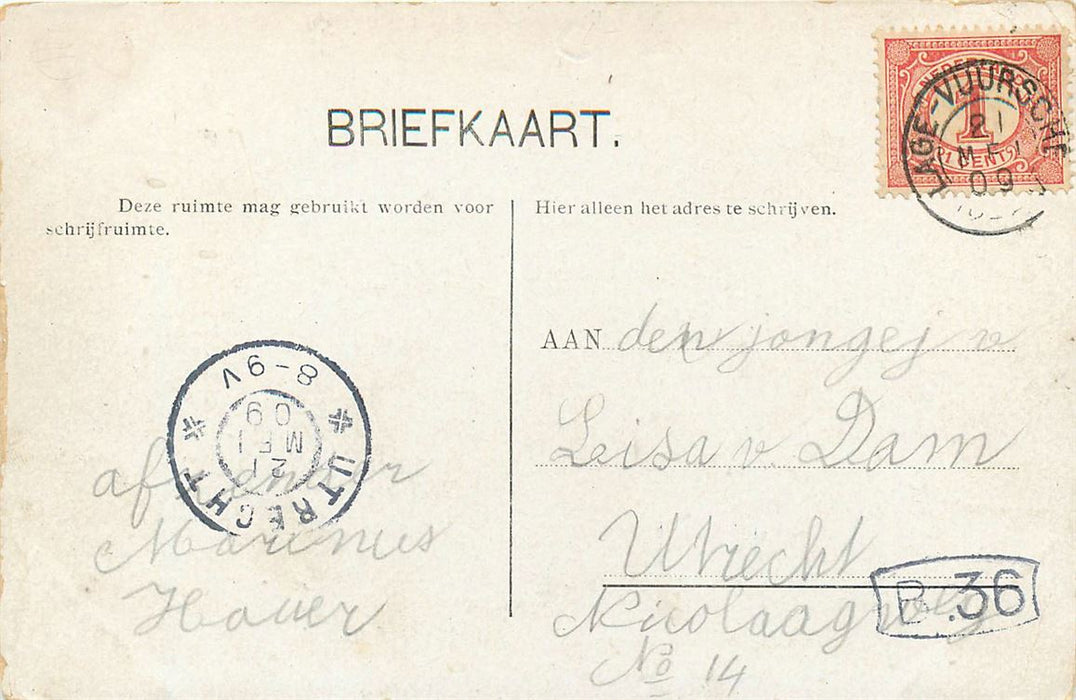 BRIEFKAART.
NEDERLAND
1
1 CENT
LAGE-VUURSCHE
21
MEI
09
Deze ruimte mag gebruikt worden voor
schrijfruimte.
Hier alleen het adres te schrijven.
8-9V
09
MEI
21
UTRECHT
afzender
Marinus
Hover
AAN den jongej v
Leisa v. Dam
Utrecht
Nicolaagweg
No 14
B.36